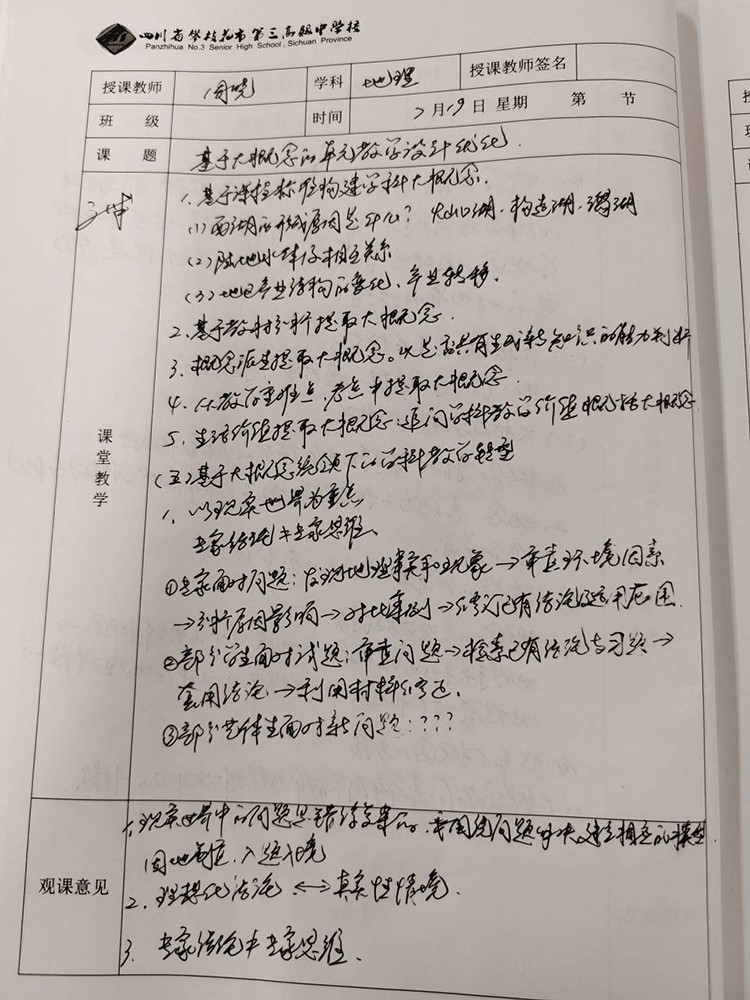 四川省攀枝花市第三高级中学校
Panzhihua No.3 Senior High School, Sichuan Province
授课教师 周晓 学科 地理 授课教师签名
班 级 时间 7月19日 星期 第 节
课 题 基于大概念的单元教学设计优化
课堂教学
1. 基于课程标准构建学科大概念.
(1) 西湖的形成原因是什么? 火山口湖、构造湖、潟湖
(2) 陆地水体的相互关系
(3) 地区产业结构的变化、产业转移.
2. 基于教材分析提取大概念.
3. 概念派生提取大概念。以是否具有生成新知识的能力判断
4. 从教学重难点、考点中提取大概念
5. 生活价值提取大概念:追问学科教学价值 概括大概念
(五) 基于大概念统领下的学科教学转型
1. 以现实世界为重点
专家结论≠专家思维
①专家面对问题:发现地理事实和现象→审查环境因素
→分析原因影响→对比案例→修订已有结论及适用范围.
②部分学生面对试题:审查问题→检索已有结论与习题→
套用结论→利用材料修正.
③部分艺体生面对新问题:???
观课意见
1. 现实世界中的问题是错综复杂的,需围绕问题解决建立相应的模型.
因地制宜,入题入境
2. 理想化结论 ⟷ 真实性情境.
3. 专家结论≠专家思维.